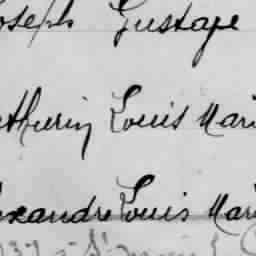 oseph Gustave
athurin Louis Mari
exandre Louis Mari